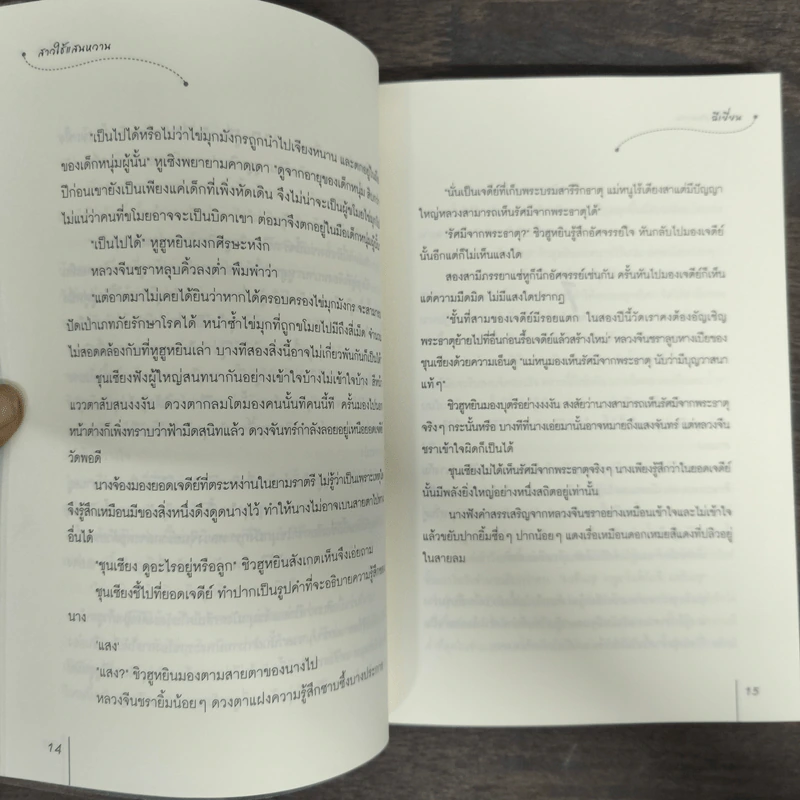 สาวใช้แสนหวาน
"เป็นไปได้หรือไม่ว่าไข่มุกมังกรถูกนำไปเจียงหนาน และตกอยู่ในมือ
ของเด็กหนุ่มผู้นั้น" หูเชิงพยายามคาดเดา "ดูจากอายุของเด็กหนุ่ม
ปีก่อนเขายังเป็นเพียงแค่เด็กที่เพิ่งหัดเดิน จึงไม่น่าจะเป็นผู้ขโมย
ไม่แน่ว่าคนที่ขโมยอาจจะเป็นบิดาเขา ต่อมาจึงตกอยู่ในมือเด็กหนุ่ม
"เป็นไปได้" หูฮูหยินผงกศีรษะหงึก
หลวงจีนชราหลุบคิ้วลงต่ำ พึมพำว่า
"แต่อาตมาไม่เคยได้ยินว่าหากได้ครอบครองไข่มุกมังกร จะสามารถ
ปัดเป่าเภทภัยรักษาโรคได้ หนำซ้ำไข่มุกที่ถูกขโมยไปมีถึงสี่เม็ด
ไม่สอดคล้องกับที่หูฮูหยินเล่า บางทีสองสิ่งนี้อาจไม่เกี่ยวพันกันก็เป็นได้
ชุนเซียงฟังผู้ใหญ่สนทนากันอย่างเข้าใจบ้างไม่เข้าใจบ้าง
แววตาสับสนงงงัน ดวงตากลมโตมองคนนั้นทีคนนี้ที ครั้นมองไป
หน้าต่างก็เพิ่งทราบว่าฟ้ามืดสนิทแล้ว ดวงจันทร์กำลังลอยอยู่เหนือยอดเจดีย์
วัดพอดี
นางจ้องมองยอดเจดีย์ที่ตระหง่านในยามราตรี ไม่รู้ว่าเป็นเพราะ
จึงรู้สึกเหมือนมีของสิ่งหนึ่งดึงดูดนางไว้ ทำให้นางไม่อาจเบนสายตาไป
อื่นได้
"ชุนเซียง ดูอะไรอยู่หรือลูก" ชิวฮูหยินสังเกตเห็นจึงเอ่ยถาม
ชุนเซียงชี้ไปที่ยอดเจดีย์ ทำปากเป็นรูปคำที่จะอธิบายความรู้สึกของ
นาง
'แสง'
"แสง?" ชิวฮูหยินมองตามสายตาของนางไป
หลวงจีนชรายิ้มน้อยๆ ดวงตาแฝงความรู้สึกซาบซึ้งบางประการ
14
ลีเซี่ยน
"นั่นเป็นเจดีย์ที่เก็บพระบรมสารีริกธาตุ แม่หนูไร้เดียงสาแต่มีปัญญา
ใหญ่หลวงสามารถเห็นรัศมีจากพระธาตุได้"
"รัศมีจากพระธาตุ?" ชิวฮูหยินรู้สึกอัศจรรย์ใจ หันกลับไปมองเจดีย์
นั้นอีกแต่ก็ไม่เห็นแสงใด
สองสามีภรรยาแซ่หูก็นึกอัศจรรย์เช่นกัน ครั้นหันไปมองเจดีย์ก็เห็น
แต่ความมืดมิด ไม่มีแสงใดปรากฏ
"ชั้นที่สามของเจดีย์มีรอยแตก ในสองปีนี้วัดเราคงต้องอัญเชิญ
พระธาตุย้ายไปที่อื่นก่อนรื้อเจดีย์แล้วสร้างใหม่" หลวงจีนชราลูบหางเปียของ
ชุนเซียงด้วยความเอ็นดู "แม่หนูมองเห็นรัศมีจากพระธาตุ นับว่ามีบุญวาสนา
แท้ๆ"
ชิวฮูหยินมองบุตรีอย่างงงงัน สงสัยว่านางสามารถเห็นรัศมีจากพระธาตุ
จริงๆ กระนั้นหรือ บางทีที่นางเอ่ยมานั้นอาจหมายถึงแสงจันทร์ แต่หลวงจีน
ชราเข้าใจผิดก็เป็นได้
ชุนเซียงไม่ได้เห็นรัศมีจากพระธาตุจริงๆ นางเพียงรู้สึกว่าในยอดเจดีย์
นั้นมีพลังยิ่งใหญ่อย่างหนึ่งสถิตอยู่เท่านั้น
นางฟังคำสรรเสริญจากหลวงจีนชราอย่างเหมือนเข้าใจและไม่เข้าใจ
แล้วขยับปากยิ้มซื่อๆ ปากน้อยๆ แดงเรื่อเหมือนดอกเหมยสีแดงที่ปลิวอยู่
ในสายลม
15